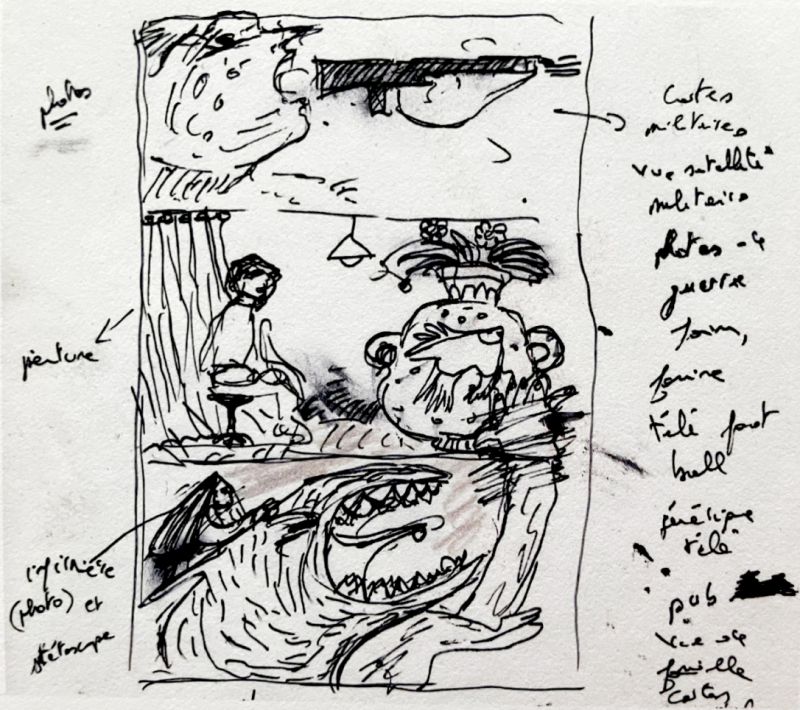 photos
peinture
infirmière
(photo) et
stétoscope
Cartes
militaires
vue satellite
militaire
photos de
guerre
faim,
famine
télé foot
ball
générique
télé
pub
vue de
famille
Cartes